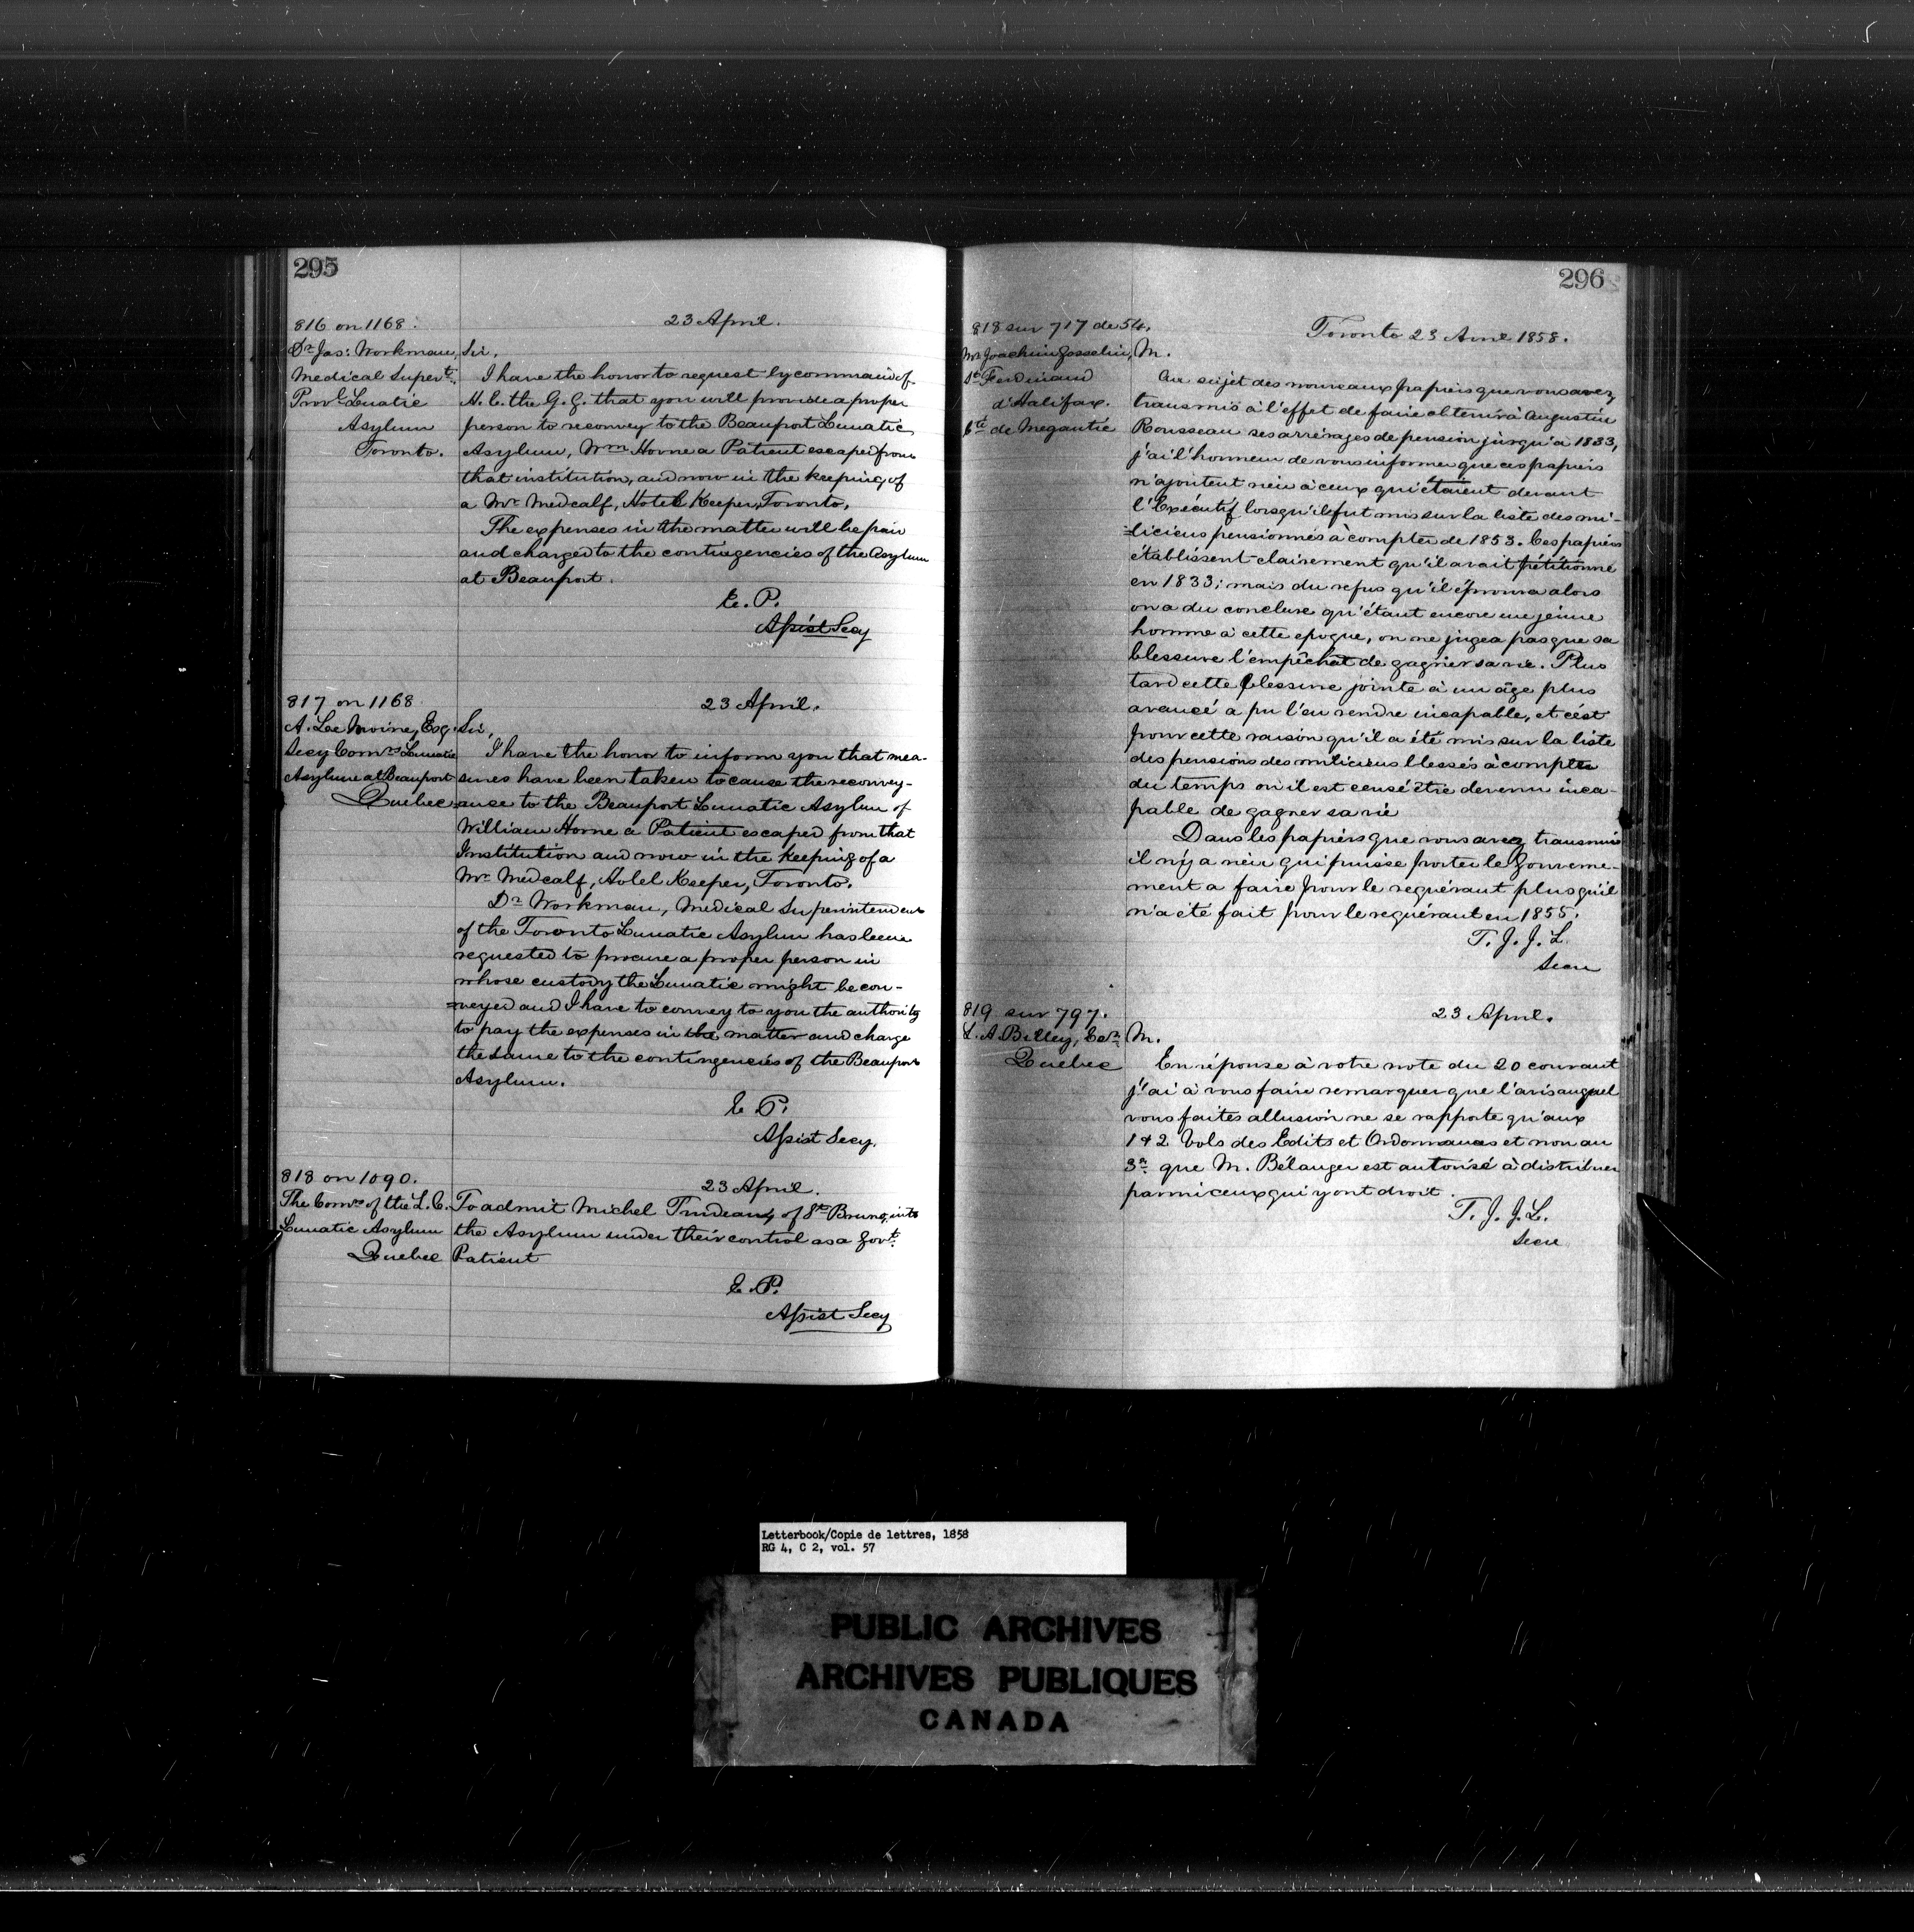 295
816 on 1168.
23 April.
Dr Jas: Workman,
Medical Supert.
Provl Lunatic
Asylum
Toronto.
Sir,
I have the honor to request by command of
H. E. the G. G. that you will provide a proper
person to reconvey to the Beauport Lunatic
Asylum, Wm Horne a Patient escaped from
that institution, and now in the keeping of
a Mr Medcalf, Hotel Keeper, Toronto.
The expenses in the matter will be paid
and charged to the contingencies of the Asylum
at Beauport.
E. P.
Assist Secy
817 on 1168
23 April.
A. Le Moine, Esq
Secy Comrs Lunatic
Asylum at Beauport
Quebec
Sir,
I have the honor to inform you that mea-
sures have been taken to cause the reconvey-
ance to the Beauport Lunatic Asylum of
William Horne a Patient escaped from that
Institution and now in the keeping of a
Mr Medcalf, Hotel Keeper, Toronto.
Dr Workman, Medical Superintendent
of the Toronto Lunatic Asylum has been
requested to procure a proper person in
whose custody the Lunatic might be con-
=veyed and I have to convey to you the authority
to pay the expenses in the matter and charge
the same to the contingencies of the Beauport
Asylum.
E P.
Assist Secy.
818 on 1090.
23 April.
The Comrs of the L. C.
Lunatic Asylum
Quebec
To admit Michel Trudeau, of St Bruno, into
the Asylum under their control as a Govt.
Patient
E. P.
Assist Secy
296
818 sur 717 de 54.
Toronto 23 Avril 1858.
Mr Joachim Gosselin,
St Ferdinand
d'Halifax.
Cté de Megantic
M.
Au sujet des nouveaux papiers que vous avez
transmis à l'effet de faire obtenir à Augustin
Rousseau ses arrérages de pension jusqu'à 1833,
j'ai l'honneur de vous informer que ces papiers
n'ajoutent rien à ceux qui étaient devant
l'Exécutif lorsqu'il fut mis sur la liste des mi-
=liciens pensionnés à compter de 1853. Ces papiers
établissent clairement qu'il avait pétitionné
en 1833; mais du refus qu'il éprouva alors
on a du conclure qu'étant encore une jeune
homme à cette epoque, on ne jugea pas que sa
blessure l'empêchat de gagner sa vie. Plus
tard cette blessure jointe à un âge plus
avancé a pu l'en rendre incapable, et c'est
pour cette raison qu'il a été mis sur la liste
des pensions des miliciens blessés à compter
du temps où il est censé être devenu inca-
pable de gagner sa vie
Dans les papiers que vous avez transmis
il n'y a rien qui puisse porter le Gouverne-
ment a faire pour le requérant plus qu'il
n'a été fait pour le requérant en 1855.
T. J. J. L.
Secre
819 sur 797.
23 April.
L. A. Billey, Ecr
Quebec
M.
En réponse à votre note du 20 courant
j'ai à vous faire remarquer que l'avis auquel
vous faites allusion ne se rapporte qu'aux
1 & 2 Vols des Edits et Ordonnances et non au
3e que M. Bélanger est autorisé à distribuer
parmi ceux qui y ont droit.
T. J. J. L.
Secre
Letterbook/Copie de lettres, 1858
RG 4, C 2, vol. 57
PUBLIC ARCHIVES
ARCHIVES PUBLIQUES
CANADA